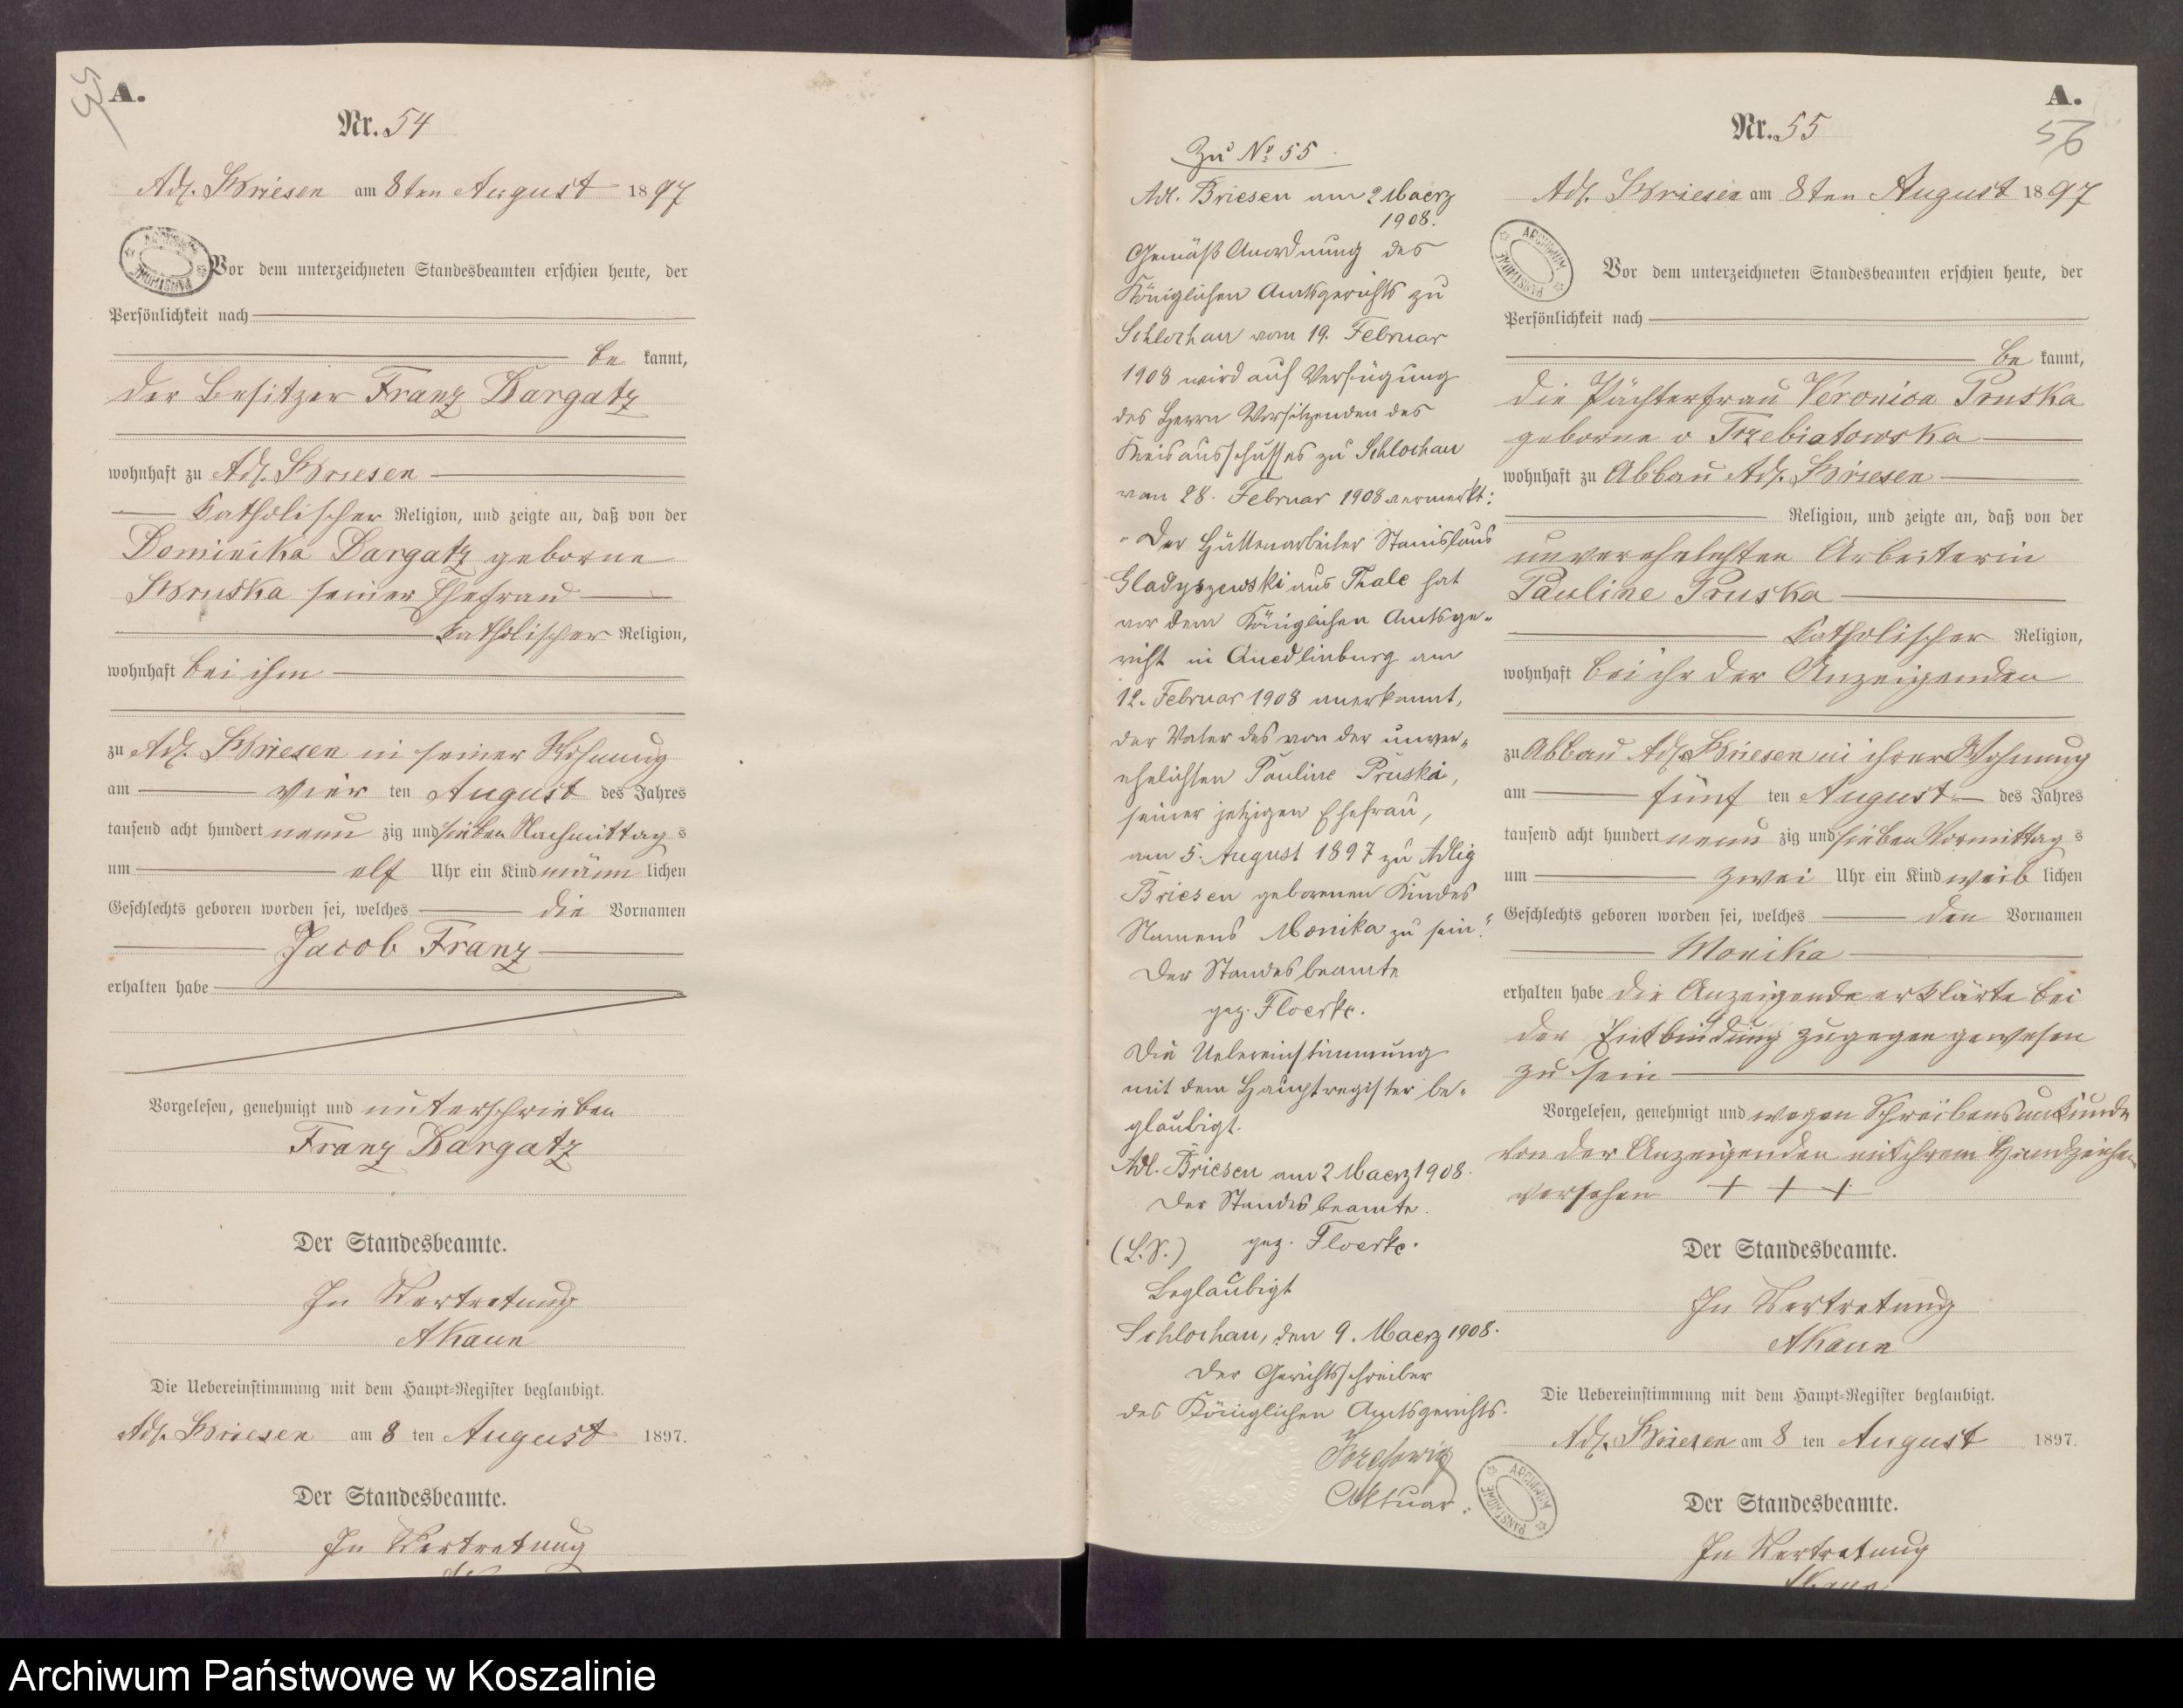 A.
Nr. 54
Adl. Briesen am 8ten August 1897
ARCHIWUM PAŃSTWOWE
Vor dem unterzeichneten Standesbeamten erschien heute, der
Persönlichkeit nach
be kannt,
der Besitzer Franz Dargatz
wohnhaft zu Adl. Briesen
katholischer Religion, und zeigte an, daß von der
Dominika Dargatz geborne
seiner Ehefrau
katholischer Religion,
wohnhaft bei ihm
zu Adl. Briesen in seiner Wohnung
am vier ten August des Jahres
tausend acht hundert neun zig und sieben Nachmittag s
um elf Uhr ein Kind männ lichen
Geschlechts geboren worden sei, welches die Vornamen
Jacob Franz
erhalten habe
Vorgelesen, genehmigt und unterschrieben
Franz Dargatz
Der Standesbeamte.
In Vertretung
Die Uebereinstimmung mit dem Haupt-Register beglaubigt.
Adl. Briesen am 8 ten August 1897.
Der Standesbeamte.
In Vertretung
Zu No 55
Adl. Briesen am 2 Maerz
1908.
Gemäß Anordnung des
Königlichen Amtsgerichts zu
Schlochau vom 19. Februar
1908 wird auf Verfügung
des Herrn Vorsitzenden des
Kreisausschusses zu Schlochau
vom 28. Februar 1908 vermerkt:
"Der Hüttenarbeiter Stanislaus
Gladyszewski aus Thale hat
vor dem Königlichen Amtsge-
richt in Quedlinburg am
12. Februar 1908 anerkannt,
der Vater des von der unver-
ehelichten Pauline Pruska,
seiner jetzigen Ehefrau,
am 5. August 1897 zu Adlig
Briesen geborenen Kindes
Namens Monika zu sein."
Der Standesbeamte
gez. Floerke.
Die Uebereinstimmung
mit dem Hauptregister be-
glaubigt.
Adl. Briesen am 2 Maerz 1908.
Der Standesbeamte.
(L.S.) gez. Floerke.
Beglaubigt
Schlochau, den 9. Maerz 1908.
Der Gerichtsschreiber
des Königlichen Amtsgerichts.
Aktuar.
A.
56
Nr. 55
Adl. Briesen am 8ten August 1897
ARCHIWUM PAŃSTWOWE
Vor dem unterzeichneten Standesbeamten erschien heute, der
Persönlichkeit nach
be kannt,
die Pächterfrau Veronica Pruska
geborne v Trzebiatowska
wohnhaft zu Abbau Adl. Briesen
Religion, und zeigte an, daß von der
unverehelichten Arbeiterin
Pauline Pruska
katholischer Religion,
wohnhaft bei ihr der Anzeigenden
zu Abbau Adl. Briesen in ihrer Wohnung
am fünf ten August des Jahres
tausend acht hundert neun zig und sieben Vormittag s
um zwei Uhr ein Kind weib lichen
Geschlechts geboren worden sei, welches den Vornamen
Monika
erhalten habe die Anzeigende erklärte bei
der Entbindung zugegen gewesen
zu sein
Vorgelesen, genehmigt und wegen Schreibensunkunde
von der Anzeigenden mit ihrem Handzeichen
versehen + + +
Der Standesbeamte.
In Vertretung
Die Uebereinstimmung mit dem Haupt-Register beglaubigt.
Adl. Briesen am 8 ten August 1897.
ARCHIWUM PAŃSTWOWE
Der Standesbeamte.
In Vertretung
Archiwum Państwowe w Koszalinie